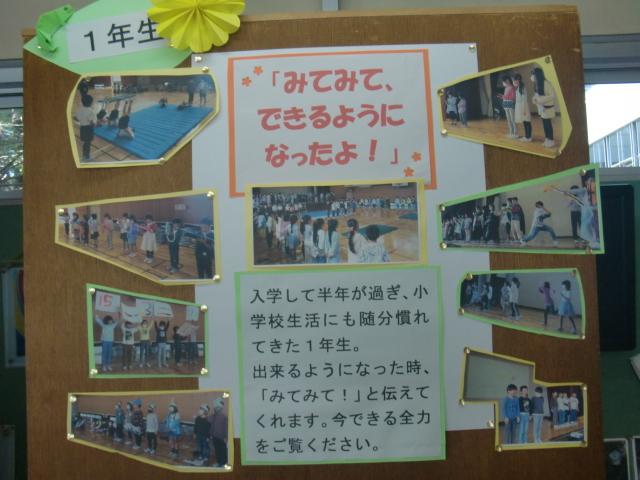 1年生
「みてみて、
できるように
なったよ!」
入学して半年が過ぎ、小
学校生活にも随分慣れ
てきた1年生。
出来るようになった時、
「みてみて!」と伝えて
くれます。今できる全力
をご覧ください。
15